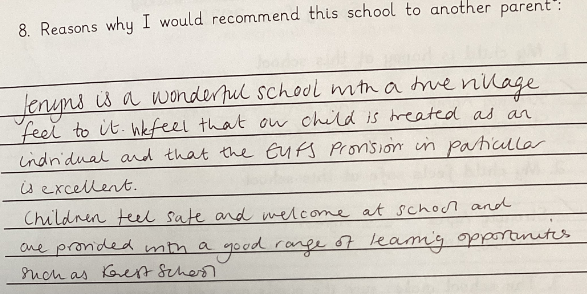 8. Reasons why I would recommend this school to another parent":
Jenyns is a wonderful school with a true village
feel to it. We feel that our child is treated as an
individual and that the EYFS Provision in particular
is excellent.
Children feel safe and welcome at school and
are provided with a good range of learning opportunities
such as Forest School